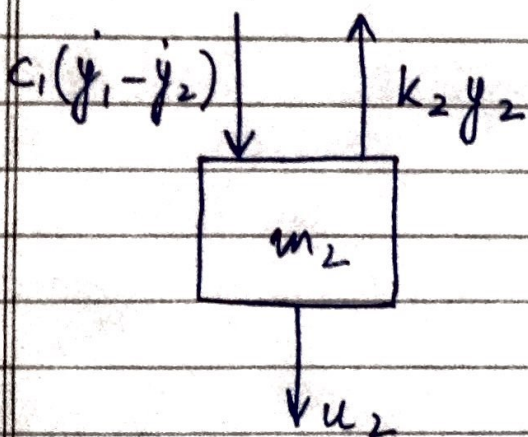 c₁(ẏ₁-ẏ₂)
k₂y₂
m₂
u₂